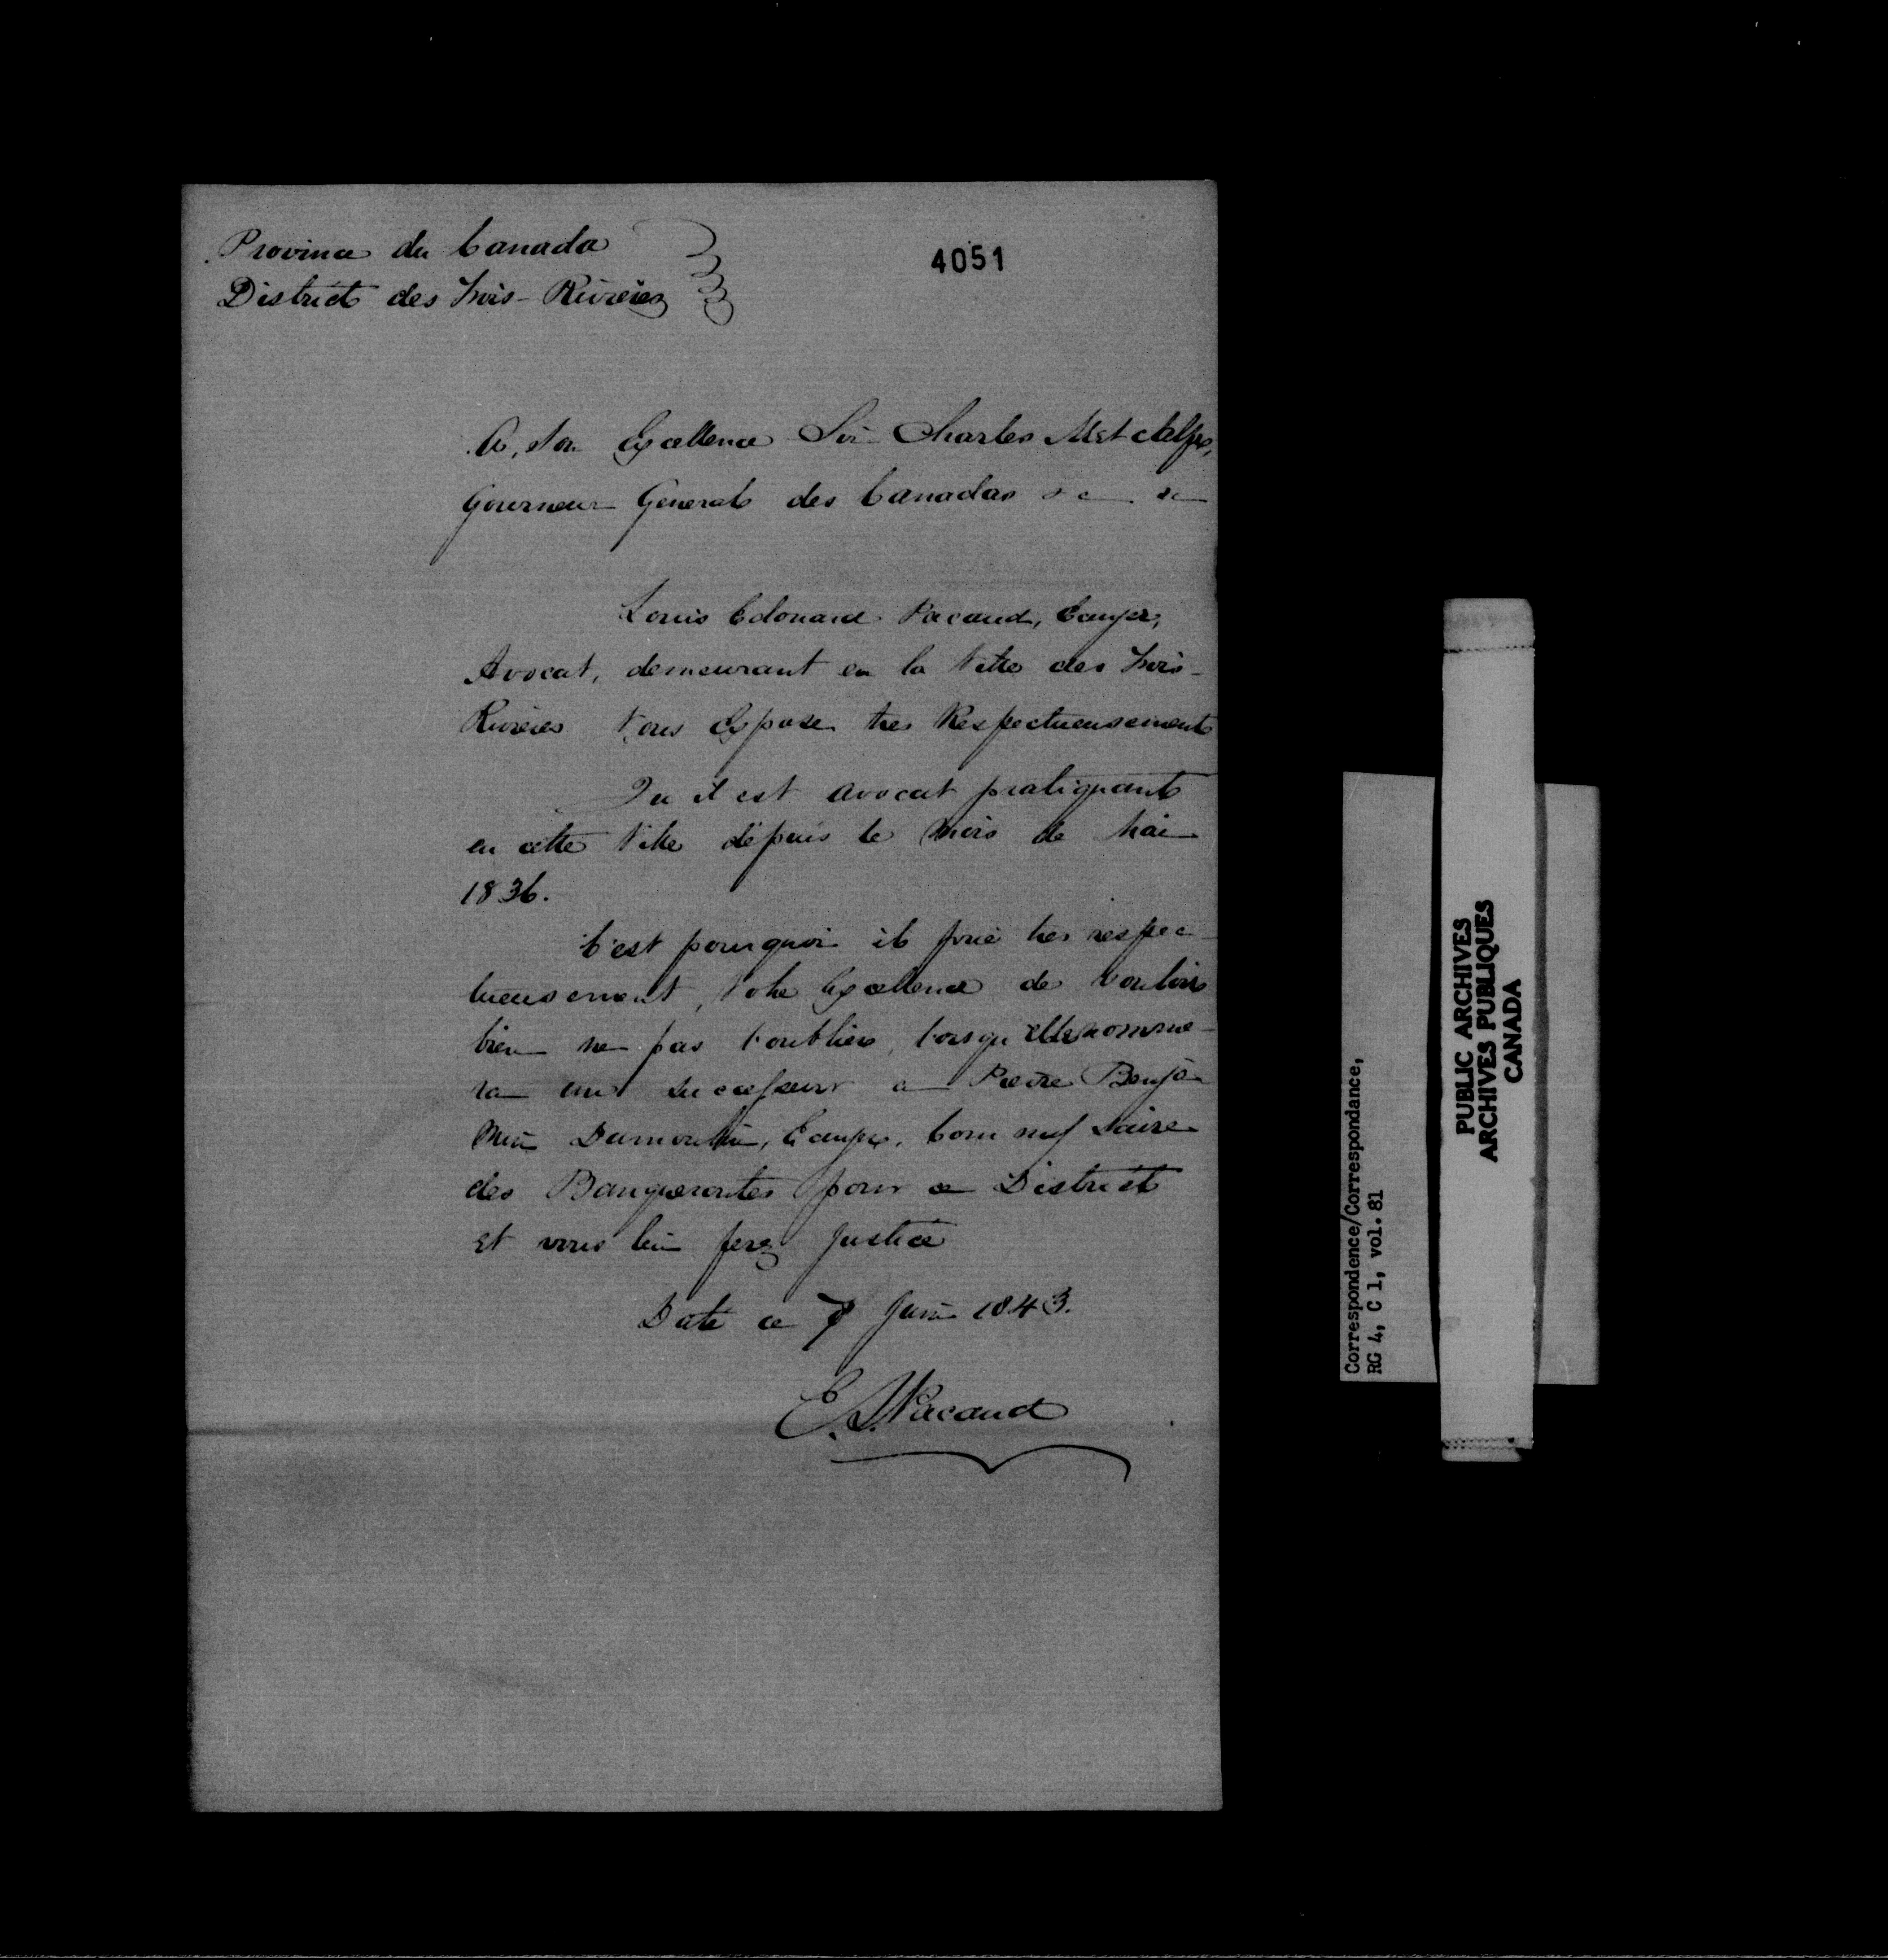 Province du Canada
District des Trois-Rivières
4051
A, Son Excellence Sir Charles Metclalfe,
Gouverneur General des Canadas &c &c
Louis Edouard Pacaud, Ecuyer,
Avocat, demeurant en la Ville des Trois-
Rivières Vous Expose tres Respectueusement
Qu il est avocat pratiquant
en cette Ville dépuis le Mois de Mai
1836.
C'est pourquoi il prie tres respec-
tueusement, Votre Excellence de Vouloir
bien ne pas l'oublier, lorsqu elle nomme-
ra un successeur a Pierre Benja-
min Dumoulin, Ecuyer, Commissaire
des Banqueroutes pour ce District
et vous lui ferez Justice
Daté ce Juin 1843.
E. L. Pacaud
Correspondence/Correspondance,
RG 4, C 1, vol. 81
PUBLIC ARCHIVES
ARCHIVES PUBLIQUES
CANADA